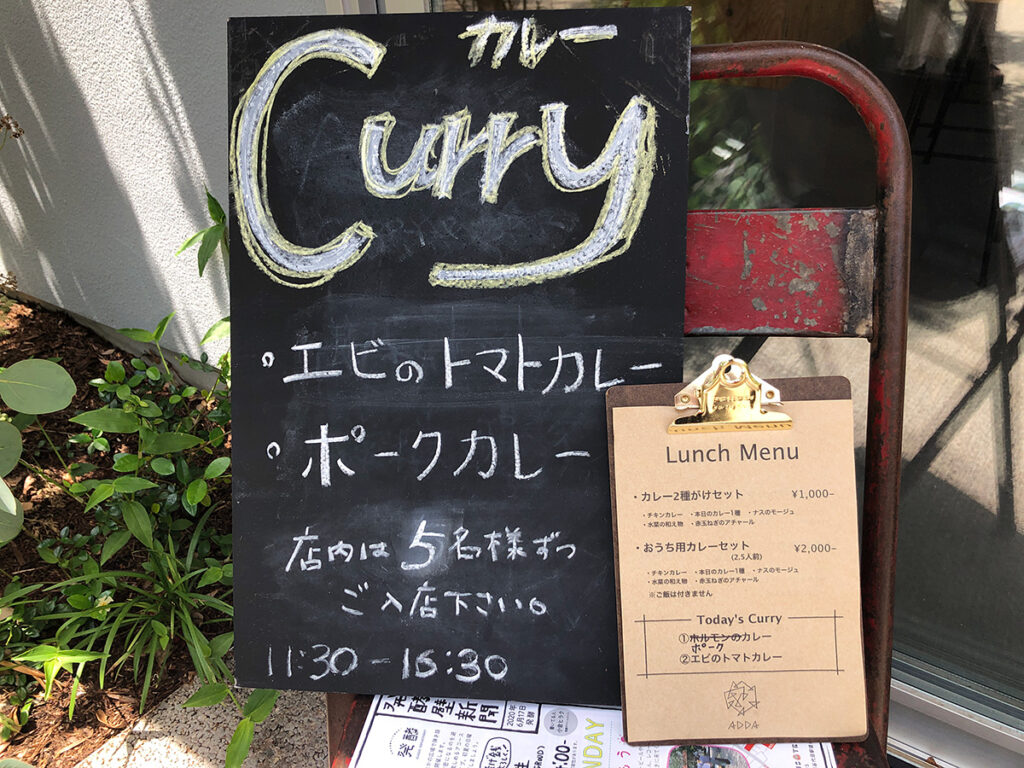 カレー
Curry
・エビのトマトカレー
・ポークカレー
店内は5名様ずつ
ご入店下さい。
11:30-15:30
Lunch Menu
・カレー2種がけセット ¥1,000-
・チキンカレー ・本日のカレー1種 ・ナスのモージュ
・水菜の和え物 ・赤玉ねぎのアチャール
・おうち用カレーセット ¥2,000-
(2.5人前)
・チキンカレー ・本日のカレー1種 ・ナスのモージュ
・水菜の和え物 ・赤玉ねぎのアチャール
※ご飯は付きません
Today's Curry
①ホルモンのカレー
ポーク
②エビのトマトカレー
ADDA
発酵壁新聞
2020年
6月17日
発酵
NDAY